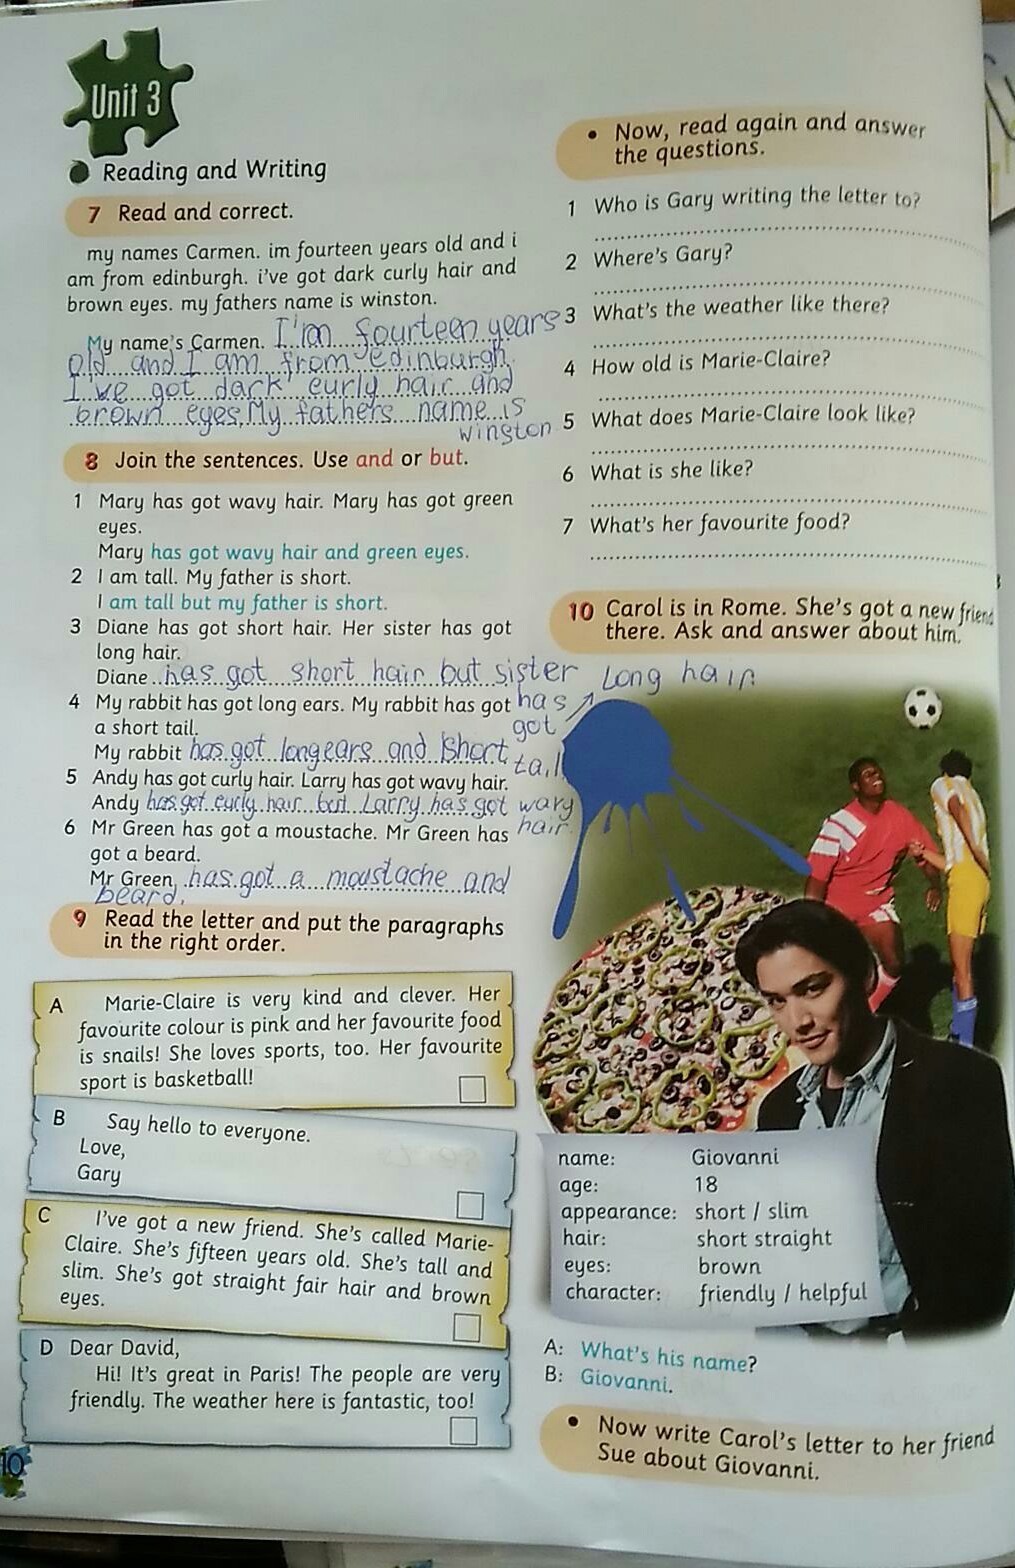 Unit 3
Reading and Writing
7 Read and correct.
my names Carmen. im fourteen years old and i
am from edinburgh. i've got dark curly hair and
brown eyes. my fathers name is winston.
My name's Carmen. I'm fourteen years
old and I am from edinburgh.
I've got dark curly hair and
brown eyes. My fathers name is
winston
8 Join the sentences. Use and or but.
1 Mary has got wavy hair. Mary has got green
eyes.
Mary has got wavy hair and green eyes.
2 I am tall. My father is short.
I am tall but my father is short.
3 Diane has got short hair. Her sister has got
long hair.
Diane has got short hair but sister
has
got
Long hair
4 My rabbit has got long ears. My rabbit has got
a short tail.
My rabbit has got long ears and short
tail
5 Andy has got curly hair. Larry has got wavy hair.
Andy has got curly hair but Larry has got wavy
hair
6 Mr Green has got a moustache. Mr Green has
got a beard.
Mr Green has got a moustache and
beard.
9 Read the letter and put the paragraphs
in the right order.
A Marie-Claire is very kind and clever. Her
favourite colour is pink and her favourite food
is snails! She loves sports, too. Her favourite
sport is basketball!
B Say hello to everyone.
Love,
Gary
C I've got a new friend. She's called Marie-
Claire. She's fifteen years old. She's tall and
slim. She's got straight fair hair and brown
eyes.
D Dear David,
Hi! It's great in Paris! The people are very
friendly. The weather here is fantastic, too!
10
• Now, read again and answer
the questions.
1 Who is Gary writing the letter to?
2 Where's Gary?
3 What's the weather like there?
4 How old is Marie-Claire?
5 What does Marie-Claire look like?
6 What is she like?
7 What's her favourite food?
10 Carol is in Rome. She's got a new friend
there. Ask and answer about him.
name: Giovanni
age: 18
appearance: short / slim
hair: short straight
eyes: brown
character: friendly / helpful
A: What's his name?
B: Giovanni.
• Now write Carol's letter to her friend
Sue about Giovanni.